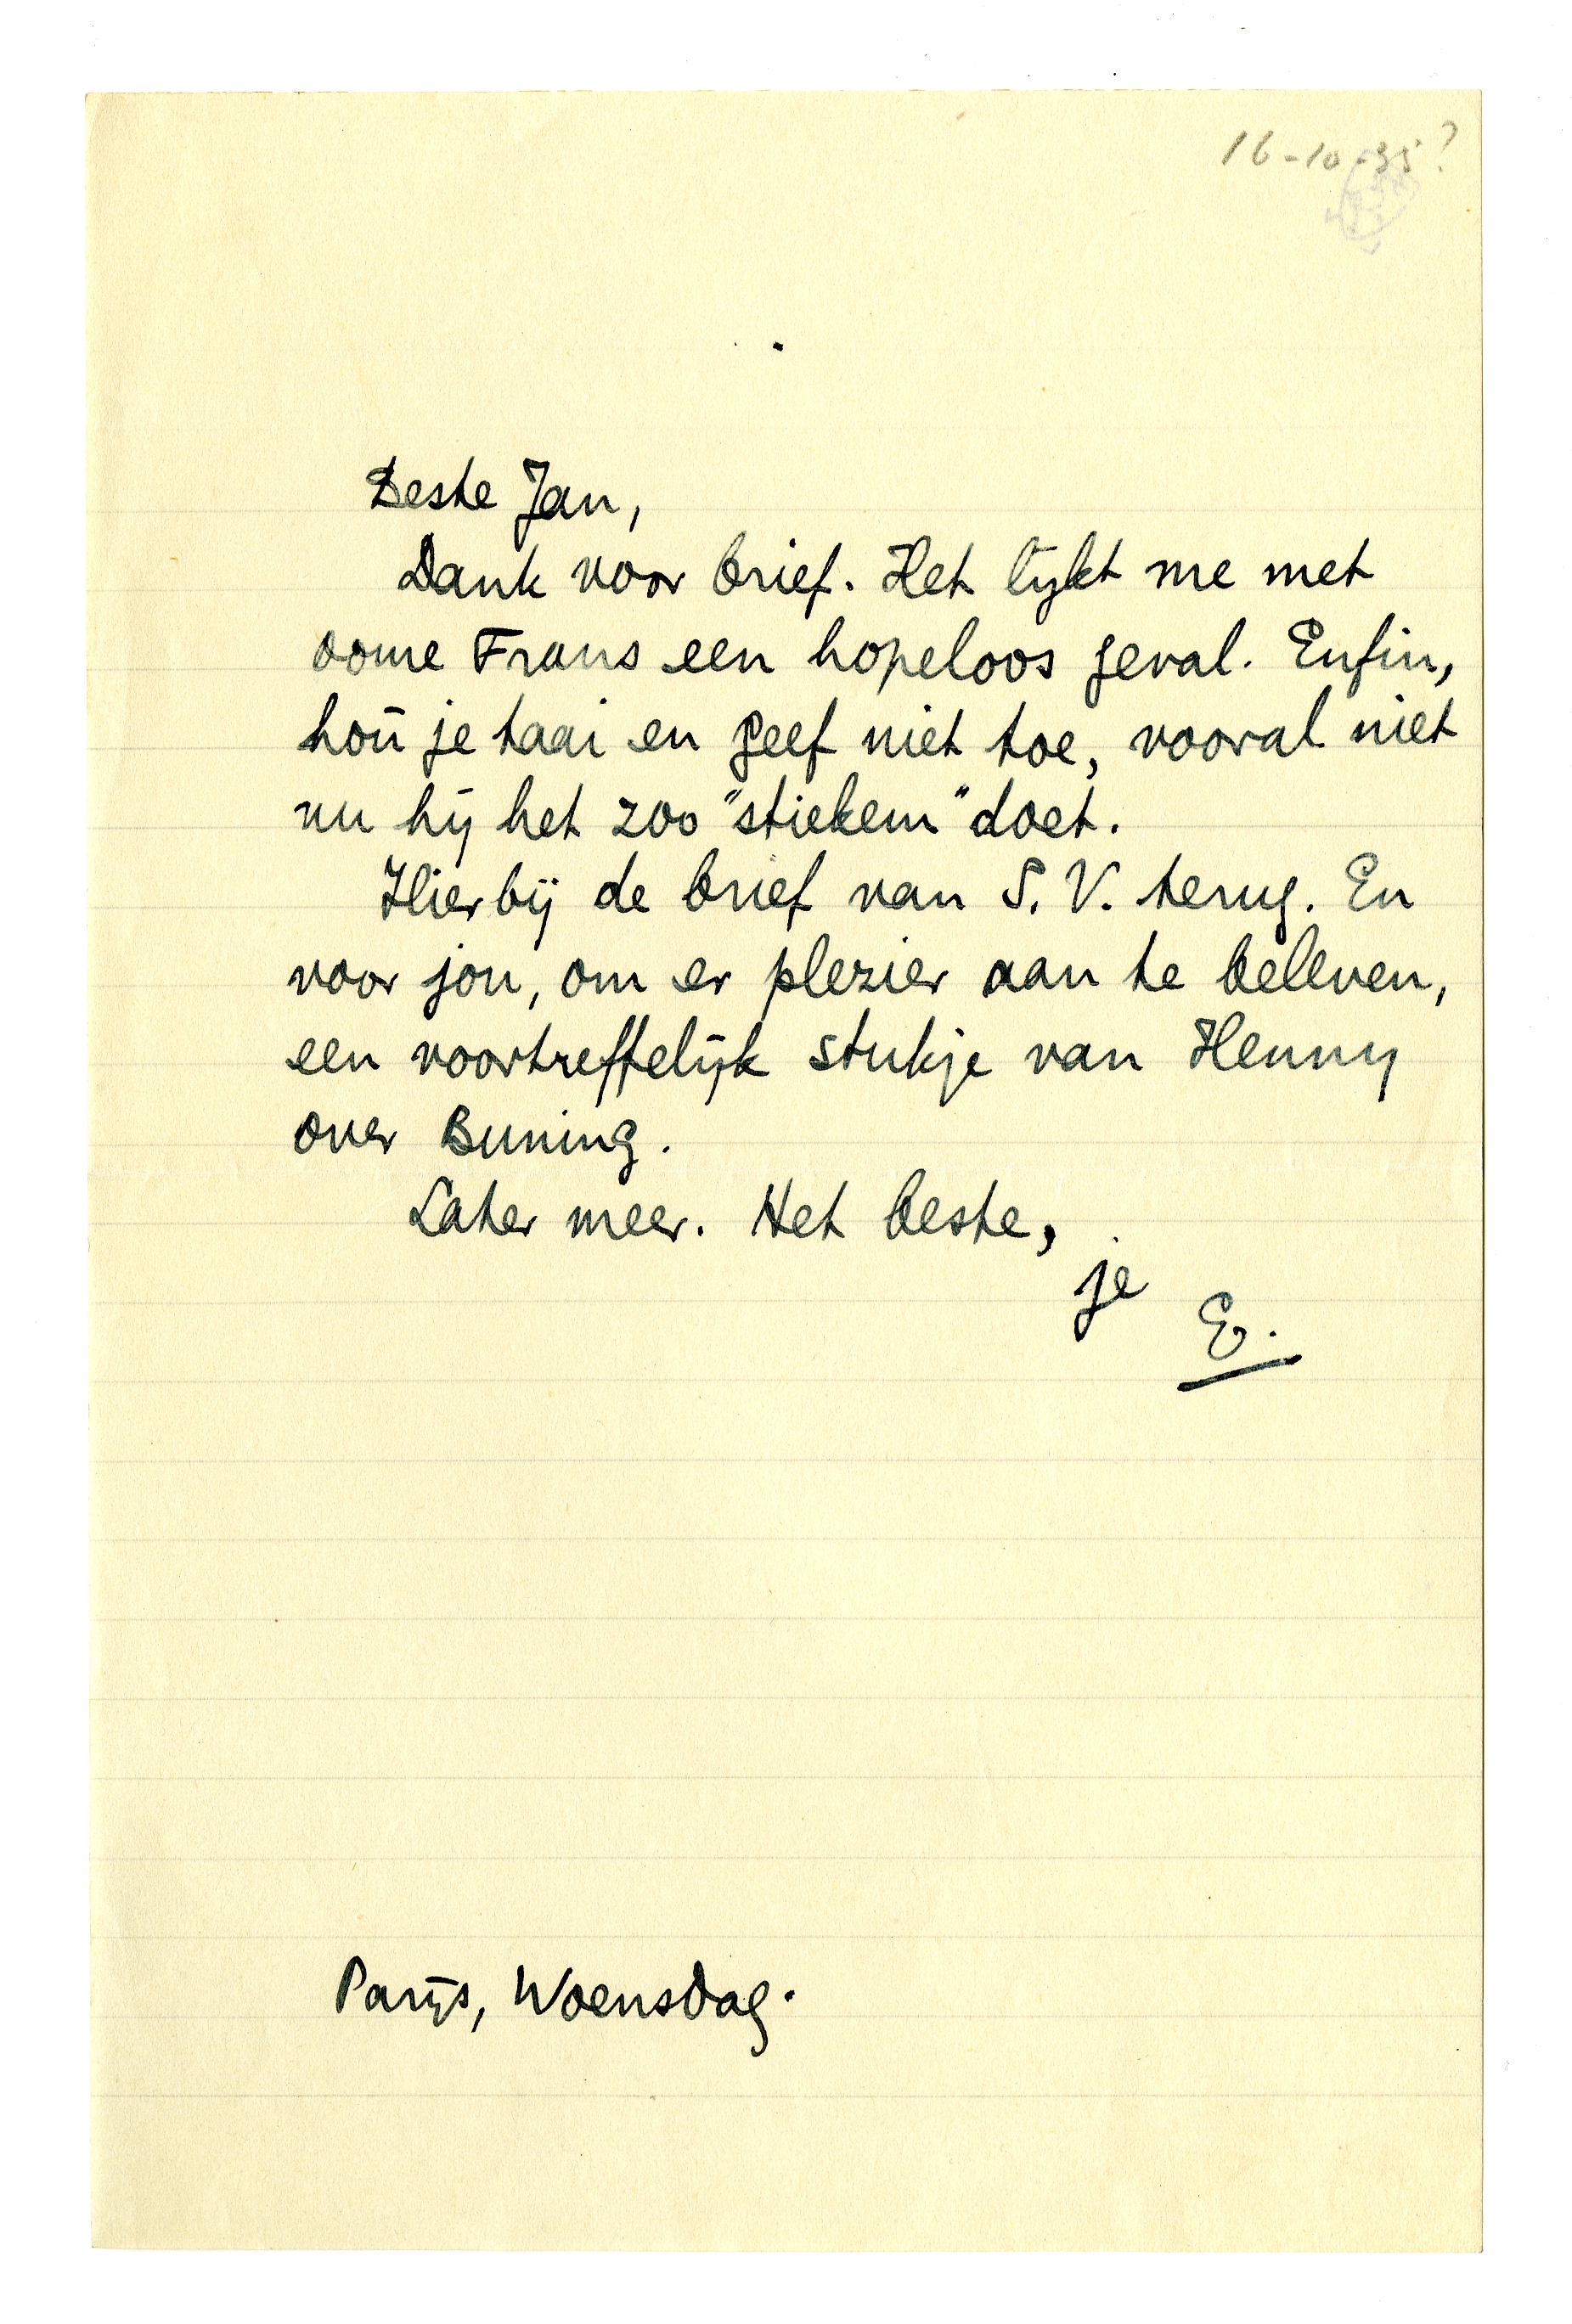 16-10-35?
Beste Jan,
Dank voor brief. Het lijkt me met
oome Frans een hopeloos geval. Enfin,
hou je taai en geef niet toe, vooral niet
nu hij het zoo "stiekem" doet.
Hierbij de brief van S.V. terug. En
voor jou, om er plezier aan te beleven,
een voortreffelijk stukje van Henny
over Buning.
Later meer. Het beste,
je
E.
Parijs, Woensdag.